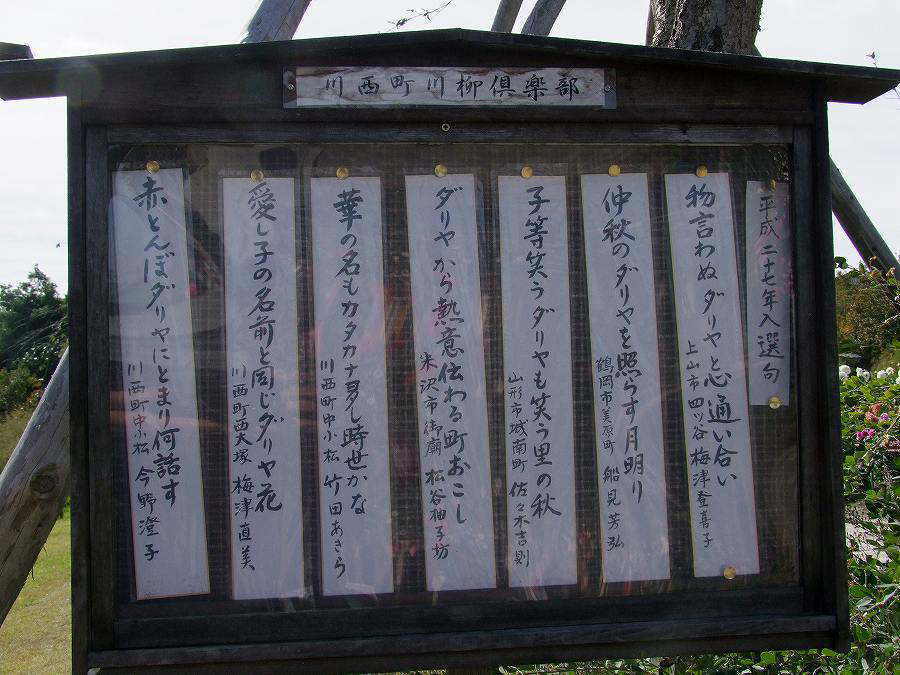 川西町川柳倶楽部
平成二十七年入選句
物言わぬダリヤと心通い合い
上山市四ツ谷 梅津登喜子
仲秋のダリヤを照らす月明り
鶴岡市美原町 船見芳弘
子等笑うダリヤも笑う里の秋
山形市城南町 佐々木吉則
ダリヤから熱意伝わる町おこし
米沢市御廟 松谷柚子坊
華の名もカタカナ多し時世かな
川西町中小松 竹田あきら
愛し子の名前と同じダリヤ花
川西町西大塚 梅津直美
赤とんぼダリヤにとまり何話す
川西町中小松 今野澄子